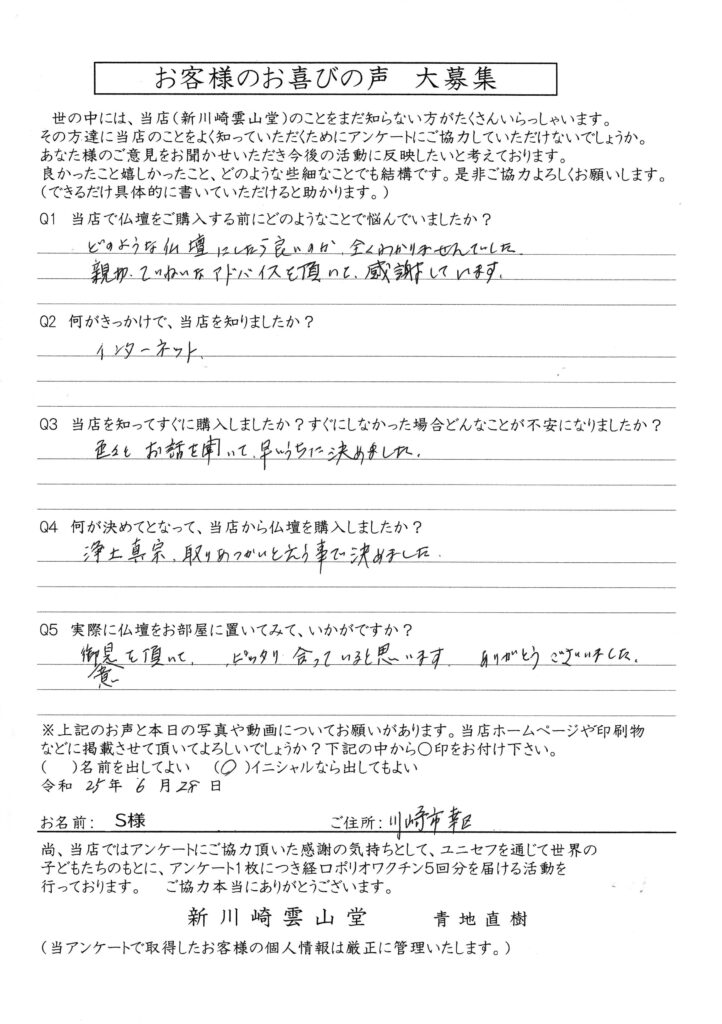 お客様のお喜びの声 大募集
世の中には、当店(新川崎雲山堂)のことをまだ知らない方がたくさんいらっしゃいます。
その方達に当店のことをよく知っていただくためにアンケートにご協力していただけないでしょうか。
あなた様のご意見をお聞かせいただき今後の活動に反映したいと考えております。
良かったこと嬉しかったこと、どのような些細なことでも結構です。是非ご協力よろしくお願いします。
(できるだけ具体的に書いていただけると助かります。)
Q1 当店で仏壇をご購入する前にどのようなことで悩んでいましたか?
どのような仏壇にしたら良いのか、全くわかりませんでした。
親切、ていねいなアドバイスを頂いて、感謝しています。
Q2 何がきっかけで、当店を知りましたか?
インターネット、
Q3 当店を知ってすぐに購入しましたか?すぐにしなかった場合どんなことが不安になりましたか?
色々と お話を聞いて、早いうちに決めました。
Q4 何が決めてとなって、当店から仏壇を購入しましたか?
浄土真宗、取りあつかいと云う事で決めました。
Q5 実際に仏壇をお部屋に置いてみて、いかがですか?
御意見を頂いて、ピッタリ合っていると思います。 ありがとうございました。
※上記のお声と本日の写真や動画についてお願いがあります。当店ホームページや印刷物
などに掲載させて頂いてよろしいでしょうか?下記の中から○印をお付け下さい。
( )名前を出してよい (○)イニシャルなら出してもよい
令和 25年 6月 28日
お名前: S様 ご住所: 川崎市幸区
尚、当店ではアンケートにご協力頂いた感謝の気持ちとして、ユニセフを通じて世界の
子どもたちのもとに、アンケート1枚につき経口ポリオワクチン5回分を届ける活動を
行っております。 ご協力本当にありがとうございます。
新川崎雲山堂 青地直樹
(当アンケートで取得したお客様の個人情報は厳正に管理いたします。)